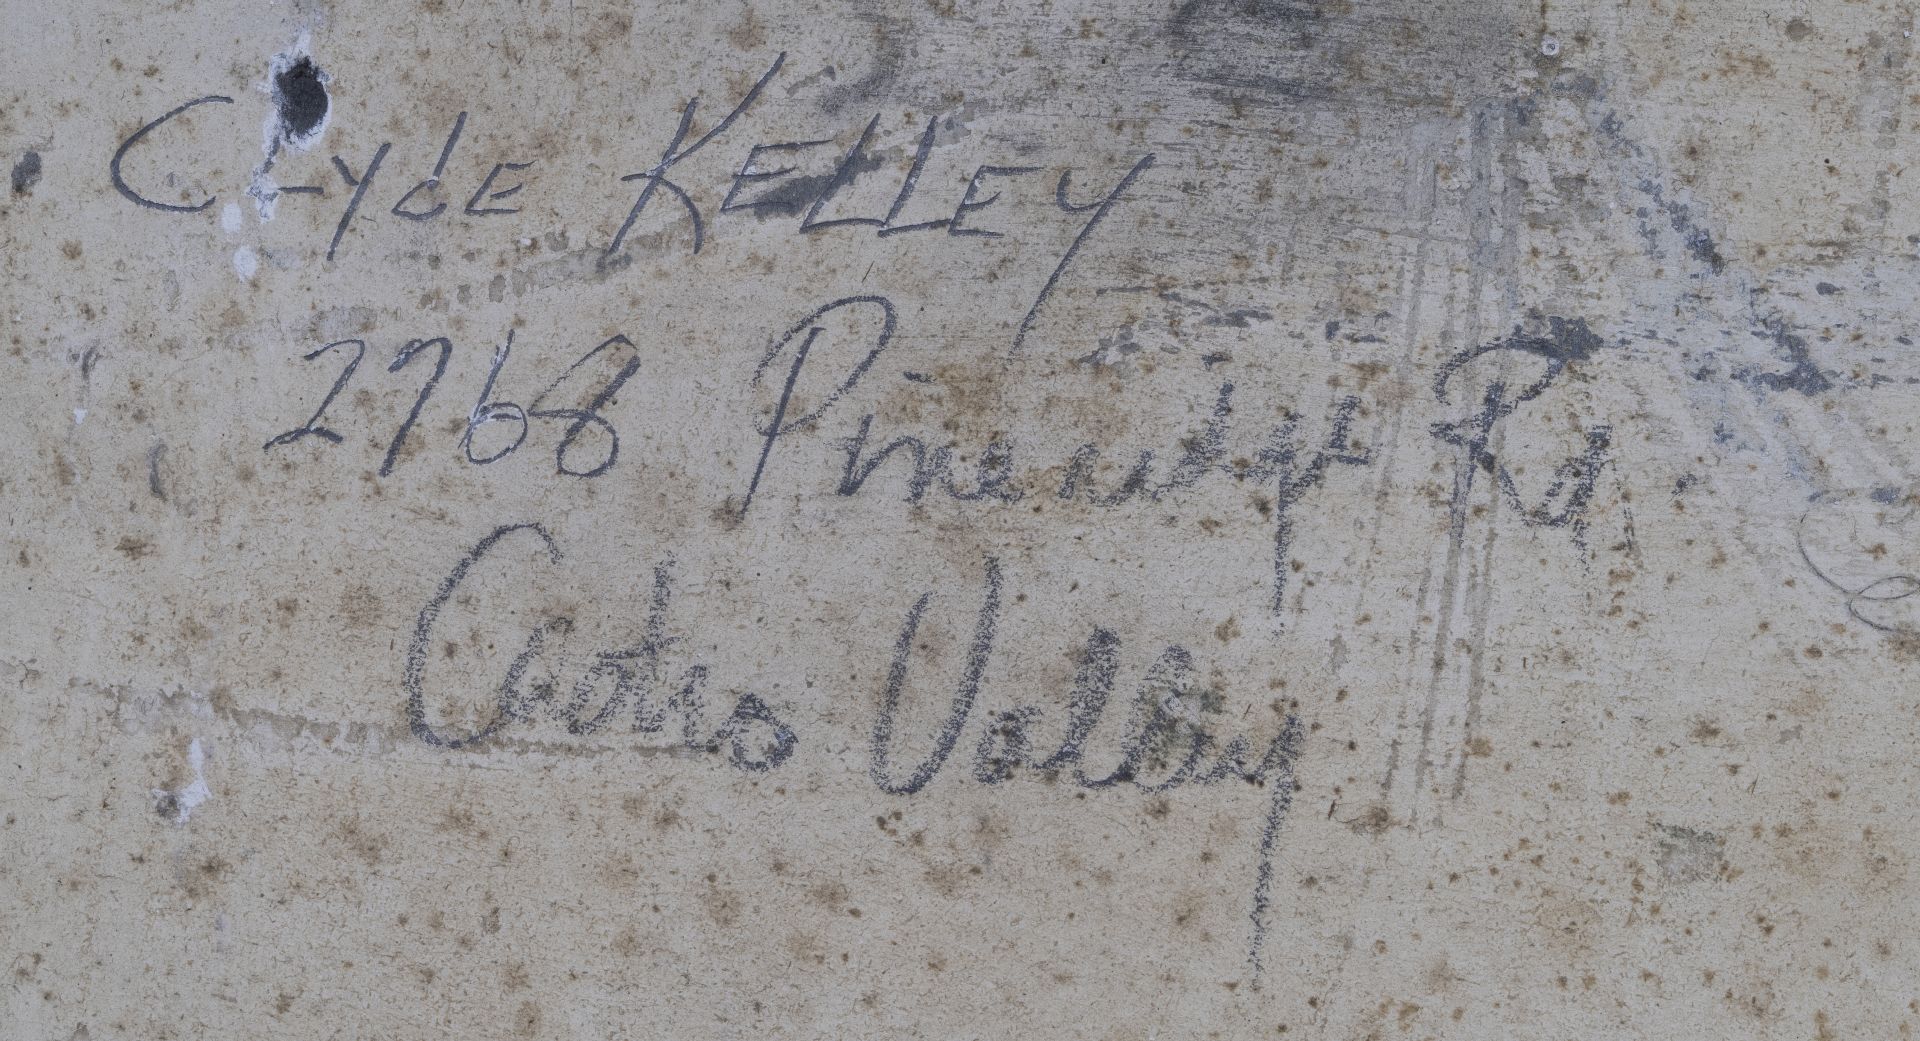 CLYdE KELLEY
2768 Pineridge Rd.
Castro Valley